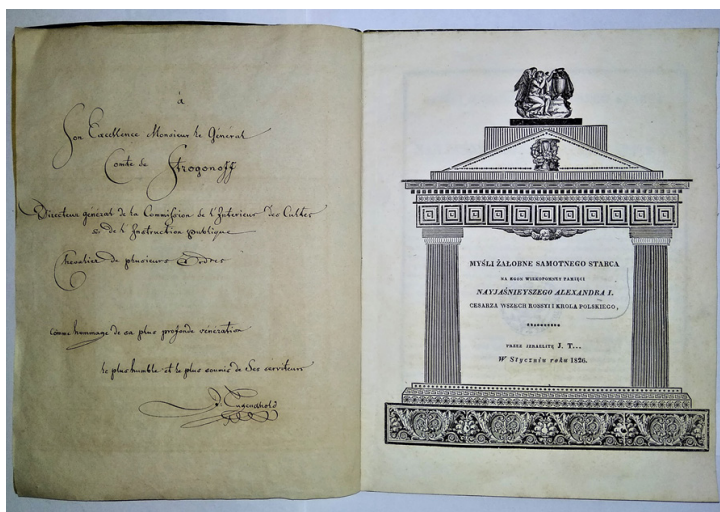 à
Son Excellence Monsieur le Général
Comte de Strogonoff
Directeur général de la Commission de l'Interieur des Cultes
& de l'Instruction publique
Chevalier de plusieurs Ordres
comme hommage de sa plus profonde veneration
le plus humble et le plus soumis de Ses serviteurs
J. Tugendhold
MYŚLI ŻAŁOBNE SAMOTNEGO STARCA
NA ZGON WIEKOPOMNEY PAMIĘCI
NAYJAŚNIEYSZEGO ALEXANDRA I.
CESARZA WSZECH ROSSYI I KROLA POLSKIEGO,
PRZEZ IZRAELITĘ J. T...
W Styczniu roku 1826.